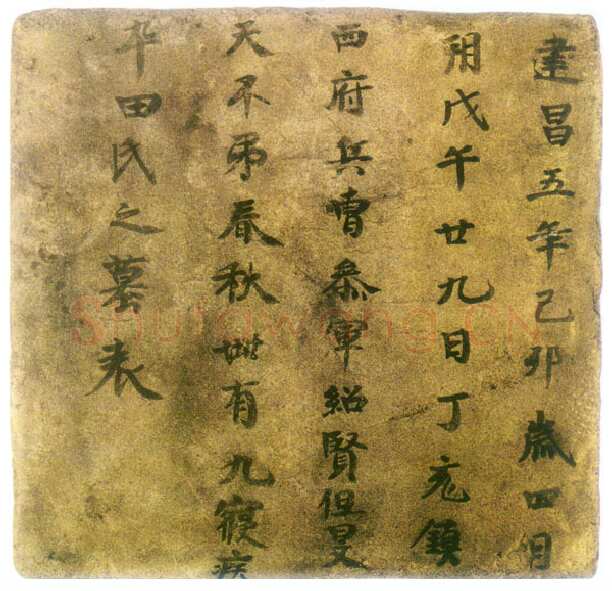 建昌五年己卯歲四月
朔戊午廿九日丁亥鎮
西府兵曹參軍紹賢但旻
天不弔春秋卌有九寢疾
卒田氏之墓表
Shufawang.CN